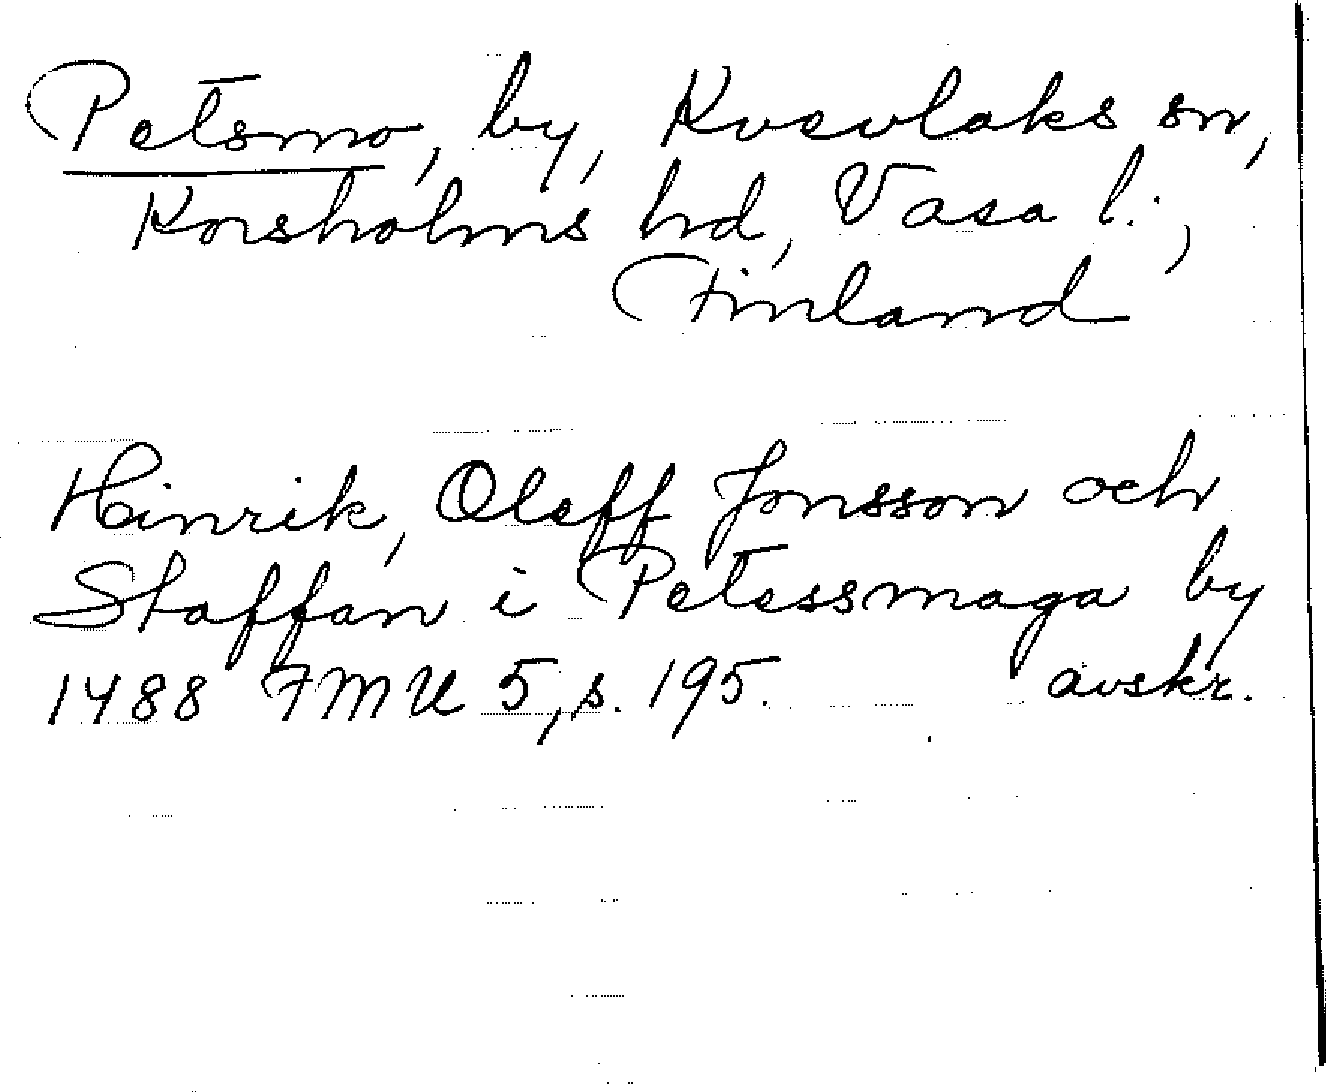 Petsmo, by, Kvevlaks sn,
Korsholms hd, Vasa l.,
Finland
Hinrik, Oleff Jonsson och
Staffan i Petessmaga by
1488 FMU 5, s. 195. avskr.